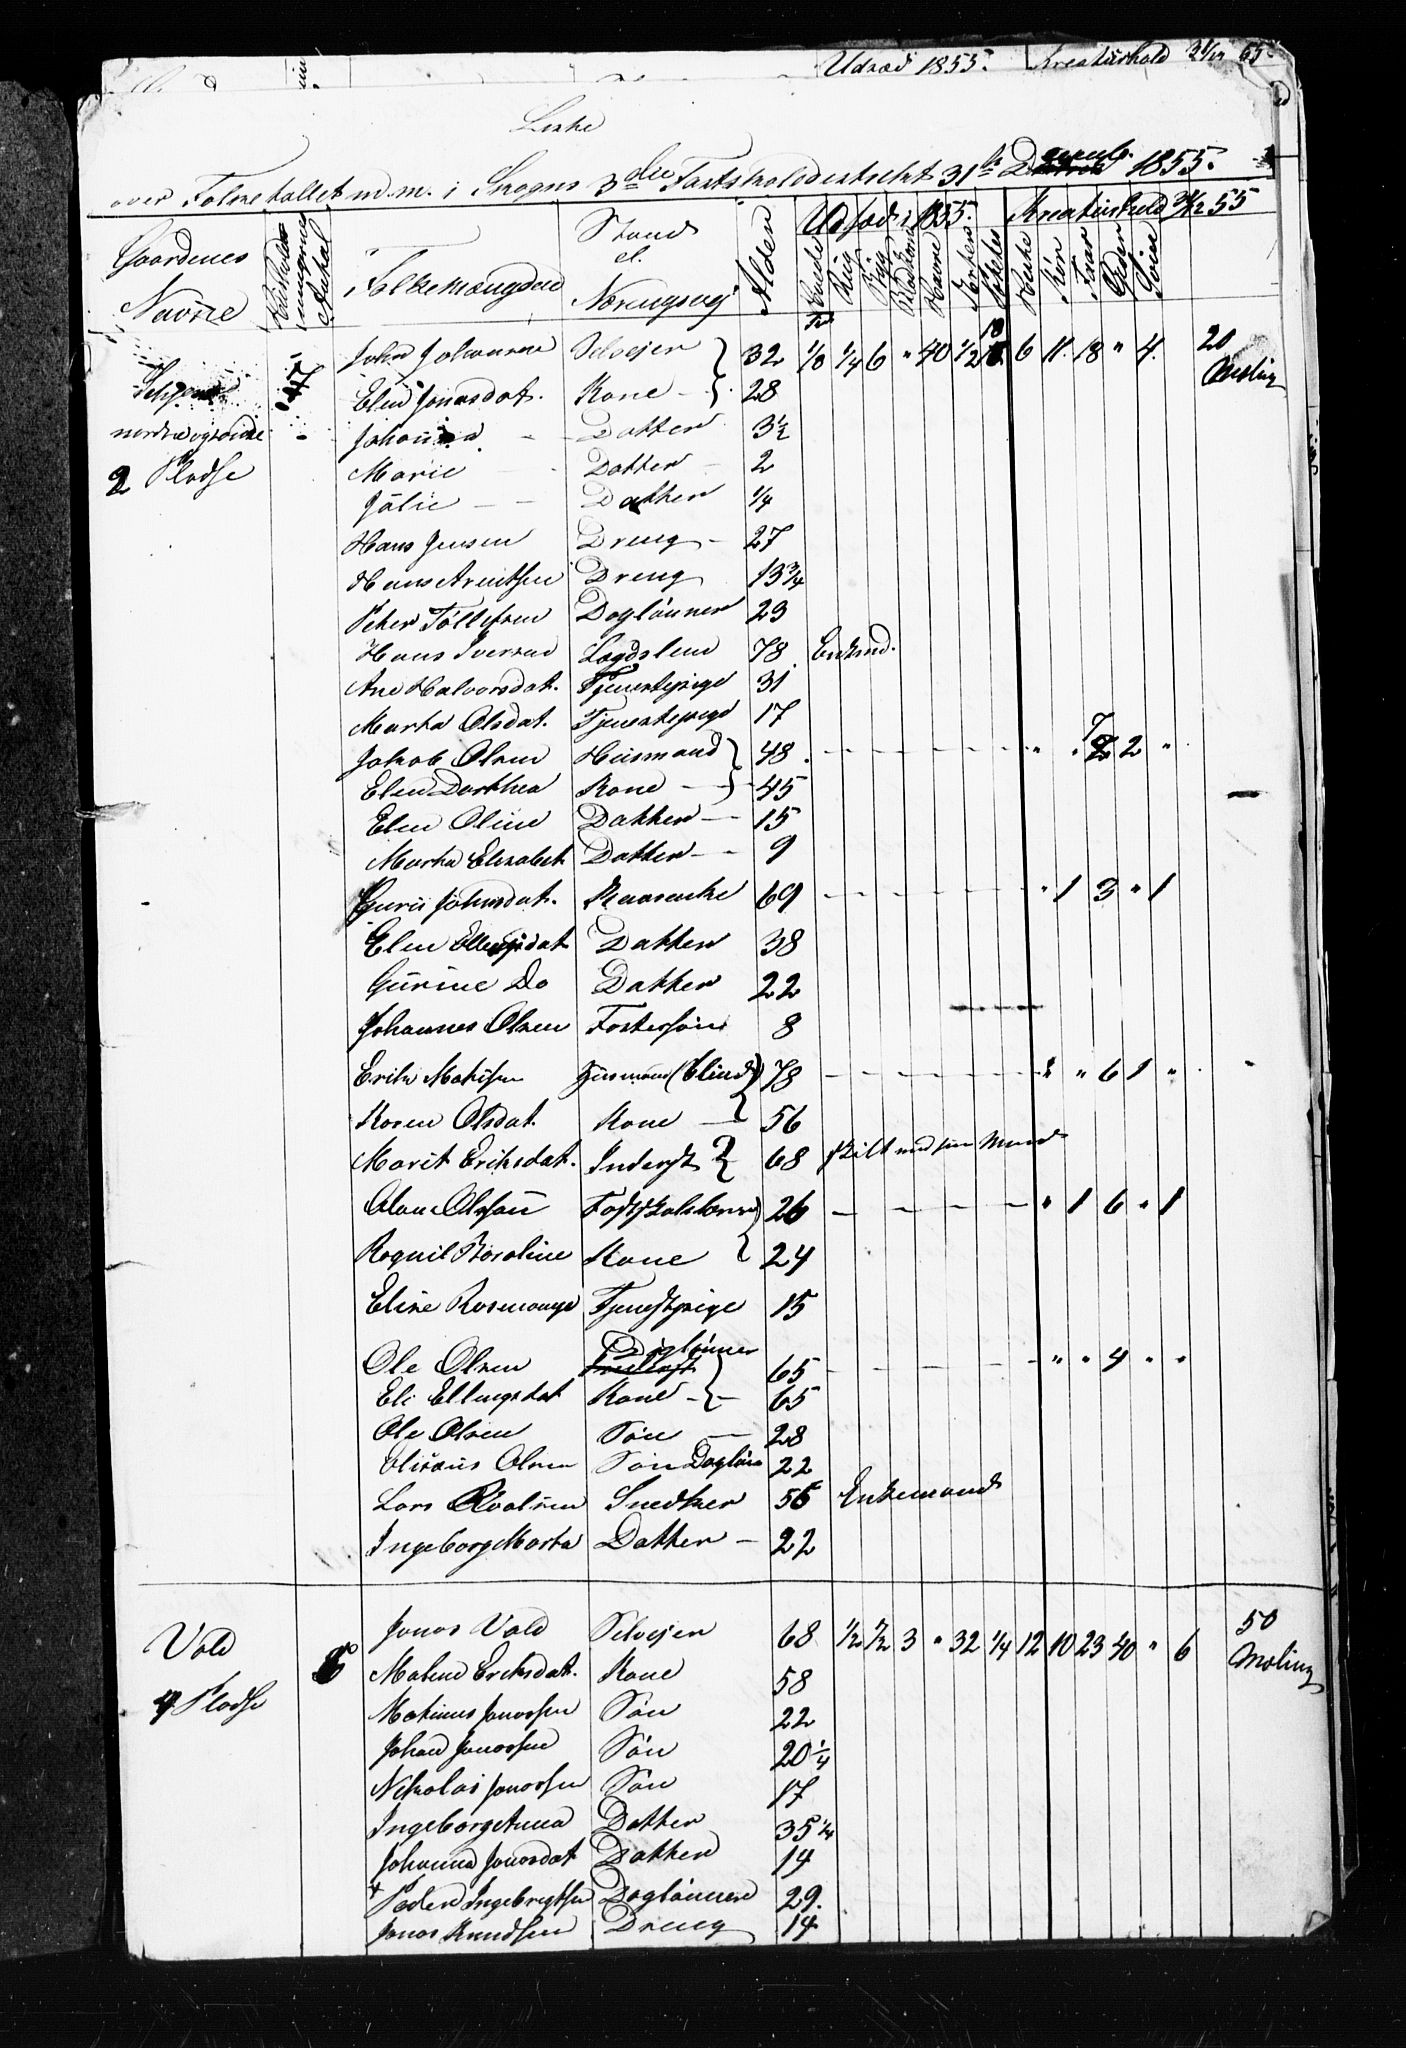 Udsæd 1855. Kreaturhold 31/12 55
Liste
over Folketallet m.m. i Snogns 3die Fastskoledistrikt 31te Decemb. 1855.
Gaardenes Navne Antal Folkemængden Stand el. Næringsvej Alder Udsæd i 1855. Kreaturhold 31/12 55
Hvede Rüg Byg Blandkorn Havre Erter Poteter Heste Kör Faar Geder Sviin
John Johannesen Selvejer 32 1/8 1/4 6 " 40 1/2 18 6 11 18 " 4 20 Mæling
nordre og søndre
2 Pladse
Elen Jonasdat. Kone - 28
Johanna - Datter 3½
Marie - Datter - 2
Jülie - - Datter 1/4
Hans Jensen Dreng - 27
Hans Arentsen Dreng 13 3/4
Peter Tøllefsen Daglønner 23
Hans Iversen Lægdslem 78 Enkemd.
Ane Halvorsdat. Tjenestepige 31
Marta Olsdat. Tjenestepige 17
Jakob Olsen Huusmand 48 - - - - - - " " 7 2 "
Elen Dorthea Kone - 45
Elen Oline Datter - 15
Marta Elisabet Datter - - 9
Guru Johnsdat. Kaarenke 69 - - - - - - " 1 3 " 1
Elen Ellingsdat Datter 38
Gurine Do Datter 22
Johannes Olsen Fostersøn 8
Erik Mathisen Huusmand (blind) 78 - - - - - - " " 6 1 "
Karen Olsdat. Kone - 56
Marit Eriksdat. Inderst 68 skilt ved sin Mand
Olaus Olsson Fastskolelærer 26 - - - - - - " 1 6 " 1
Ragnil Karoline Kone 24
Elise Rasmusspe Tjenestpige 15
Daglønner
Ole Olsen Inderst 65 - - - - - - " " 4 " "
Eli Ellingsdat Kone - - 65
Ole Olsen Søn - 28
Elisæus Olsen Søn Dagløn 22
Lars Roalsen Snedker 56 Enkemand
Ingeborg Marta Datter - 22
Vold 6 Jonas Vold Selvejer 68 1/2 1/2 3 " 32 1/4 12 10 23 40 " 6 50 Mæling
4 Pladse
Malene Eriksdat. Kone 58
Matinus Jonassen Søn 22
Johan Jonassen Søn 20 1/4
Nikolai Jonassen Søn 17
Ingeborg Anna Datter 35 1/4
Johanna Jonasdat Datter 14
Peder Ingebrigtsen Daglønner 29.
Jonas Knudsen Dreng 14